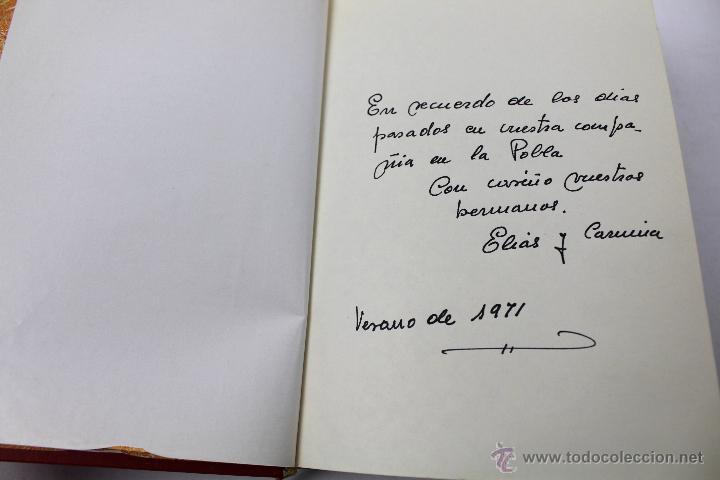 En recuerdo de los dias
pasados en vuestra compa-
ñia en la Pobla
Con cariño vuestros
hermanos.
Elías y Carmina
Verano de 1971
todocoleccion
www.todocoleccion.net